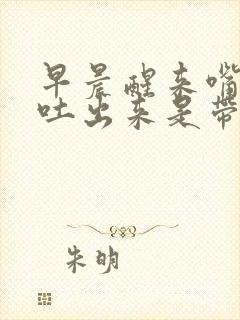 早晨醒来嘴
吐出来是带
朱明